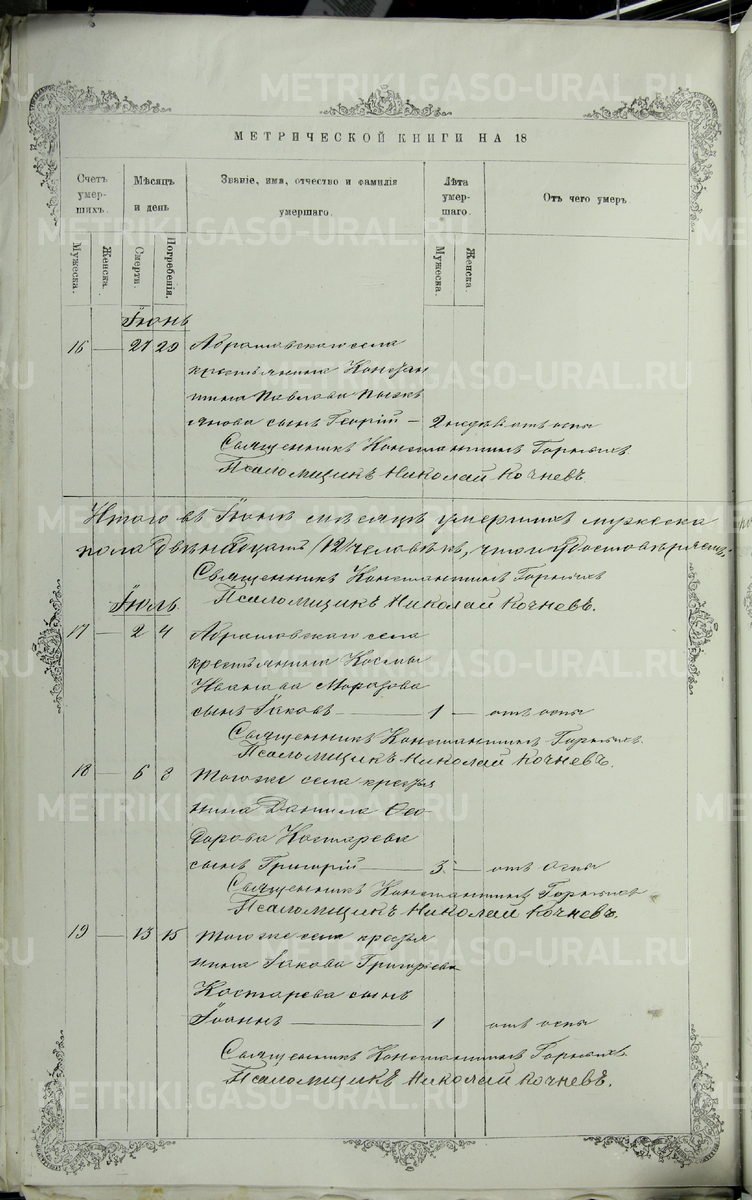 METRIKI.GASO-URAL.RU
МЕТРИЧЕСКОЙ КНИГИ НА 18
Счетъ умерших.
Мѣсяцъ и день
Званіе, имя, отчество и фамилія умершаго.
Лѣта умершаго.
Отъ чего умеръ
Мужеска.
Женска.
Смерти.
Погребенія.
Мужеска.
Женска.
Іюнь
16 — 27 29 Абрамовскаго села
крестьянина Констан
тина Павлова
сынъ Георгій — 2 недѣл отъ оспы
Священникъ Константинъ
Псаломщикъ Николай Кочневъ.
Итого въ Іюнѣ мѣсяцѣ умершихъ мужеска
пола двѣнадцать /12/ человѣкъ, что и удостовѣряемъ.
Священникъ Константинъ
Псаломщикъ Николай Кочневъ.
Іюль
17 — 2 4 Абрамовскаго села
крестьянина Космы
Иванова Морозова
сынъ Іаковъ — 1 — отъ оспы
Священникъ Константинъ
Псаломщикъ Николай Кочневъ.
18 — 6 8 Тогоже села крестья
нина Данила Ѳео
дорова Костарева
сынъ Григорій — 3 — отъ оспы
Священникъ Константинъ
Псаломщикъ Николай Кочневъ.
19 — 13 15 Тогоже села крестья
нина Іакова Григорьева
Костарева сынъ
Іоаннъ — 1 отъ оспы
Священникъ Константинъ
Псаломщикъ Николай Кочневъ.